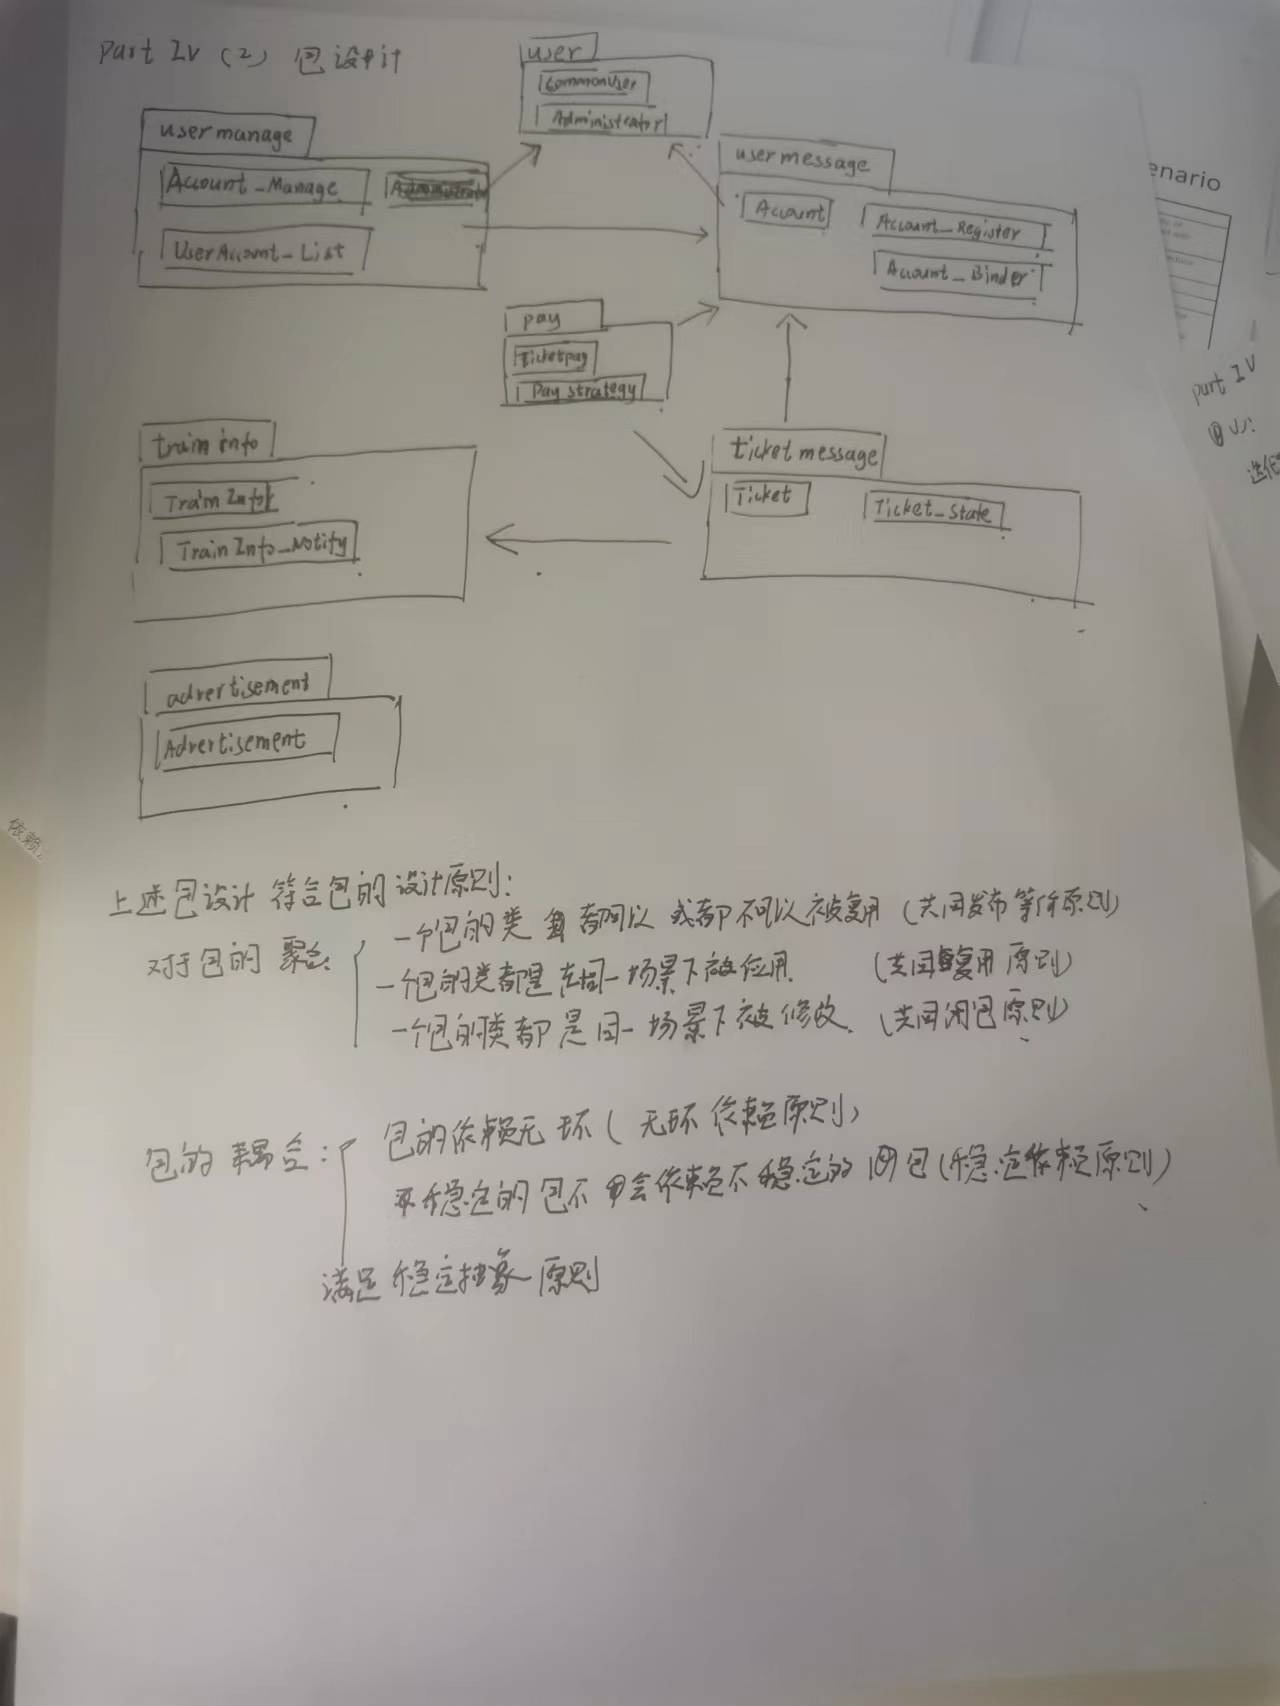 Part IV (2) 包设计
user
CommonUser
Administrator
user manage
Account_Manage
UserAccount_List
user message
Account
Account_Register
Account_Binder
pay
Ticketpay
Pay strategy
train info
Train Info
TrainInfo_Notify
ticket message
Ticket
Ticket_State
advertisement
Advertisement
上述包设计符合包的设计原则:
对于包的聚合:
一个包的类都可以或都不可以被复用 (共同发布等价原则)
一个包的类都是在同一场景下被应用. (共同复用原则)
一个包的类都是同一场景下被修改. (共同闭包原则)
包的耦合:
包的依赖无环 (无环依赖原则)
稳定的包不会依赖不稳定的包 (稳定依赖原则)
满足稳定抽象原则
enario
part IV
迭代
依赖